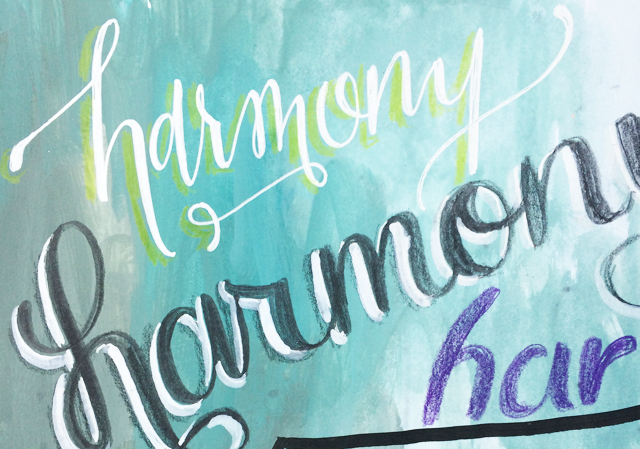 harmony
harmony
har